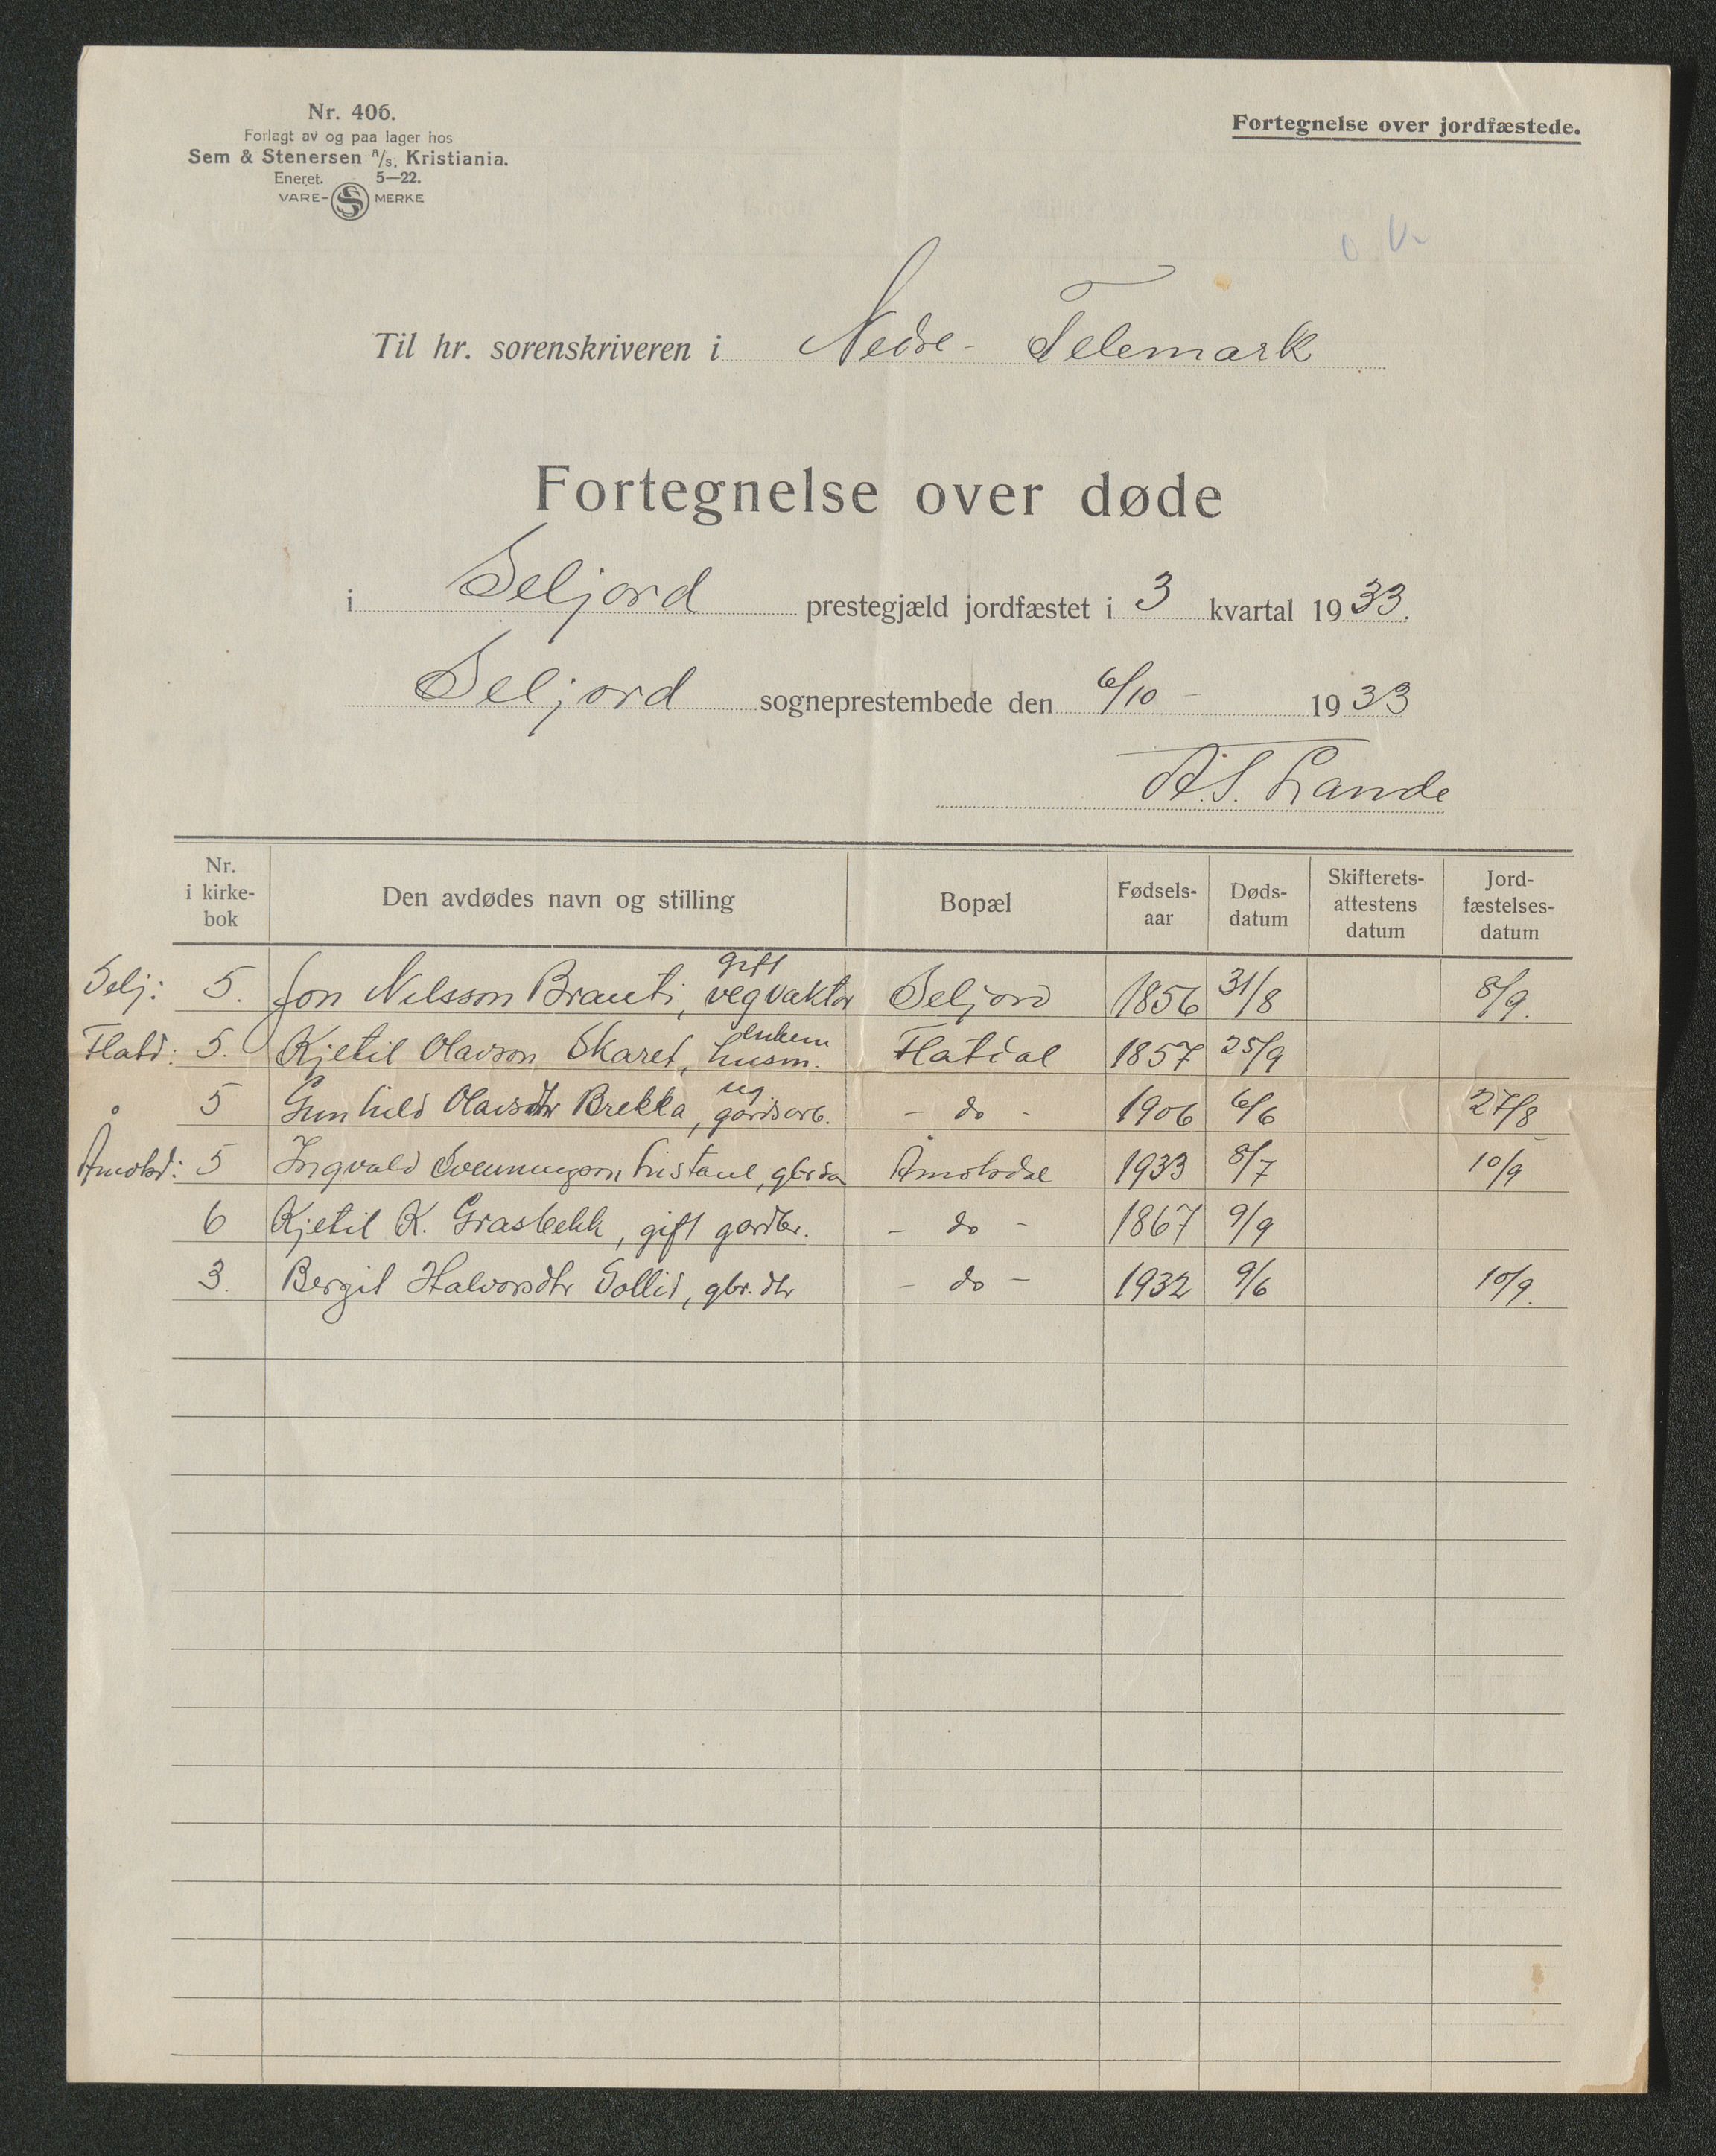 Nr. 406.
Forlagt av og paa lager hos
Sem & Stenersen A/s, Kristiania.
Eneret. 5—22.
VARE- S MERKE
Fortegnelse over jordfæstede.
Til hr. sorenskriveren i Nedre - Telemark
Fortegnelse over døde
i Seljord prestegjæld jordfæstet i 3 kvartal 1933.
Seljord sogneprestembede den 6/10 - 1933
A.S. Lande
Nr. i kirke-bok | Den avdødes navn og stilling | Bopæl | Fødsels-aar | Døds-datum | Skifterets-attestens datum | Jord-fæstelses-datum
Selj: 5. Jon Nilsson Brauti, gift vegvaktar Seljord 1856 31/8 8/9.
Flatd: 5. Kjetil Olavson Skaret, enkem husm. Flatdal 1857 25/9
5 Gunhild Olavsdtr Brekka, ug gardsarb. - do - 1906 6/6 27/8
Åmotsd: 5 Ingvald Sveinungson gbrsø Åmotsdal 1933 8/7 10/9
6 Kjetil K. Grasbekk, gift gardbr. - do - 1867 9/9
3. Bergit Halvorsdtr Sollid, gbr. dtr - do - 1932 9/6 10/9.